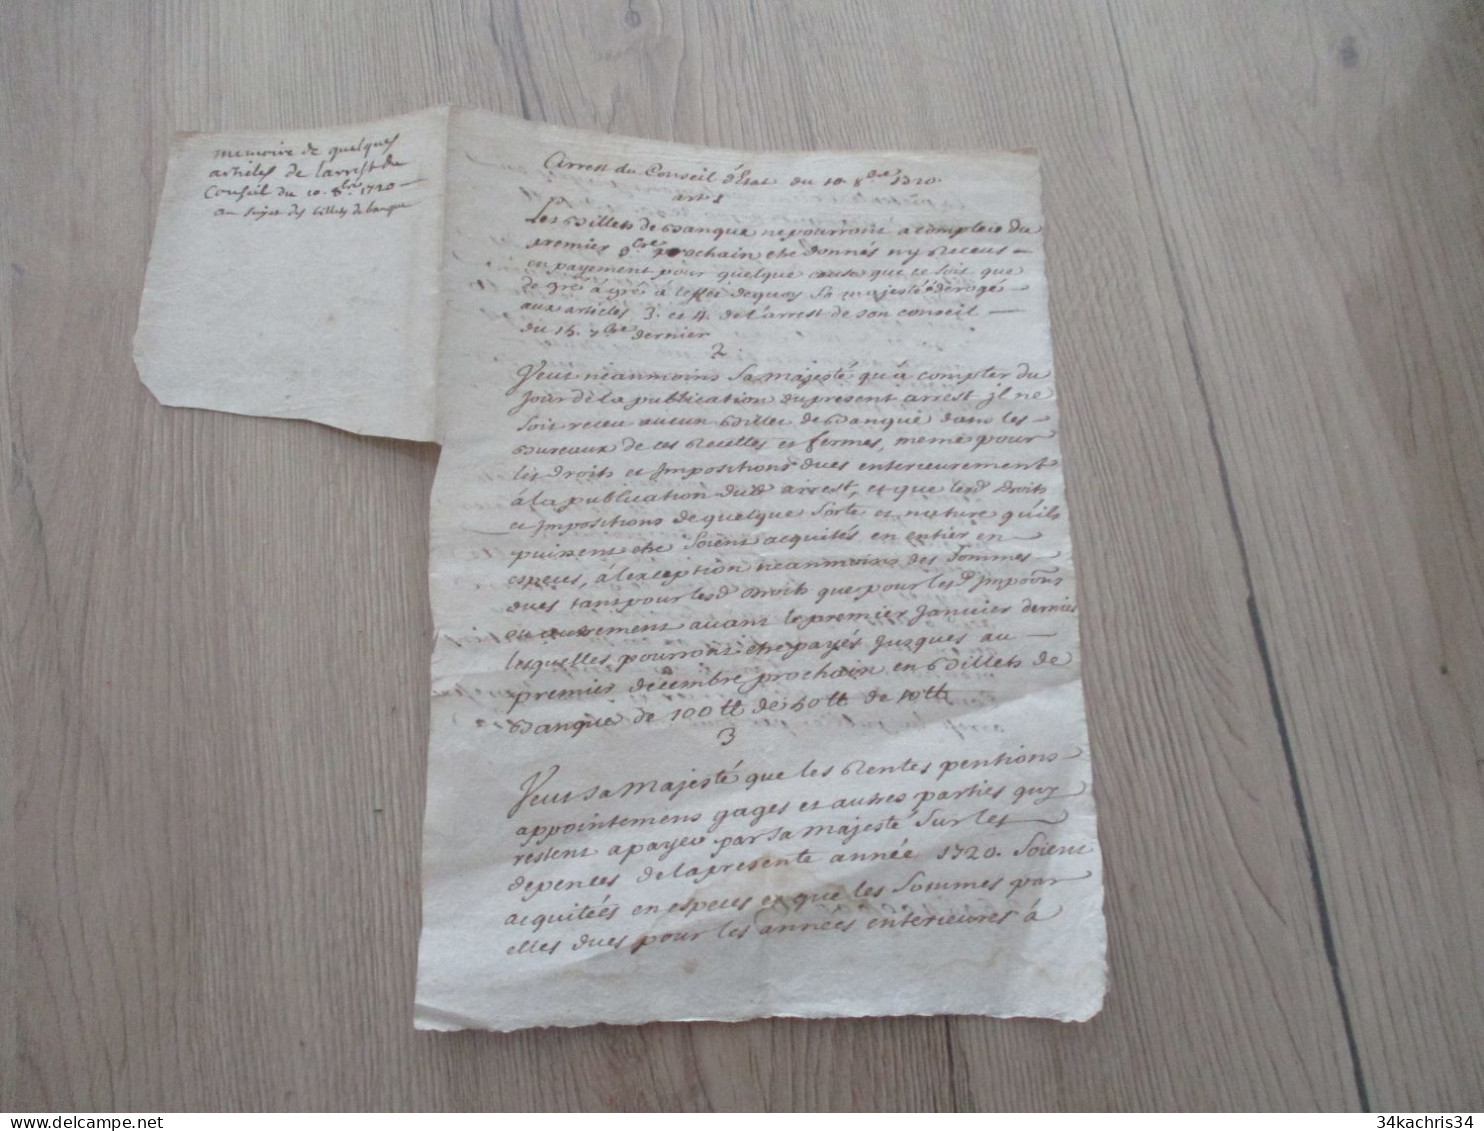 memoire de quelques
articles de l'arrest du
Conseil du 10. 8bre 1720 —
au sujet des billets de banque
Arrest du Conseil d'Estat du 10. 8bre 1720.
art 1
Les Billets de Banque ne pourront a compter du
premier 9bre prochain etre donnés ny Receus —
en payement pour quelque cause que ce soit que
de gré à gré à leffet dequoy Sa majesté à derogé —
aux articles 3. et 4. de l'arrest de son conseil —
du 15. 7bre dernier
2
Veut néanmoins Sa majesté qu'à compter du
Jour de la publication du present arrest jl ne
Soit receu aucun Billet de Banque dans les
Bureaux de ces Recettes et fermes, meme pour
les Droits et Jmpositions dues enterieurement
à la publication dud arrest, et que lesd Droits
et Jmpositions de quelque Sorte et nature qu'ils
puissent etre Soient acquités en entier en
especes, à l'exception néanmoins des Sommes
dues tant pour lesd droits que pour lesd Jmpoons
et autrement avant le premier Janvier dernier
lesquelles pourront etre payés Jusques au —
premier decembre prochain en Billets de
Banque de 100tt de 50tt de 10tt
3
Veut Sa Majesté que les Rentes pentions
appointemens gages et autres parties quy
restent a payer par Sa Majesté Sur les
depences de la presente année 1720. Soient
acquitées en especes et que les Sommes par
elles dues pour les années enterieures à
34kachris34
delcampe.net
34kachris34